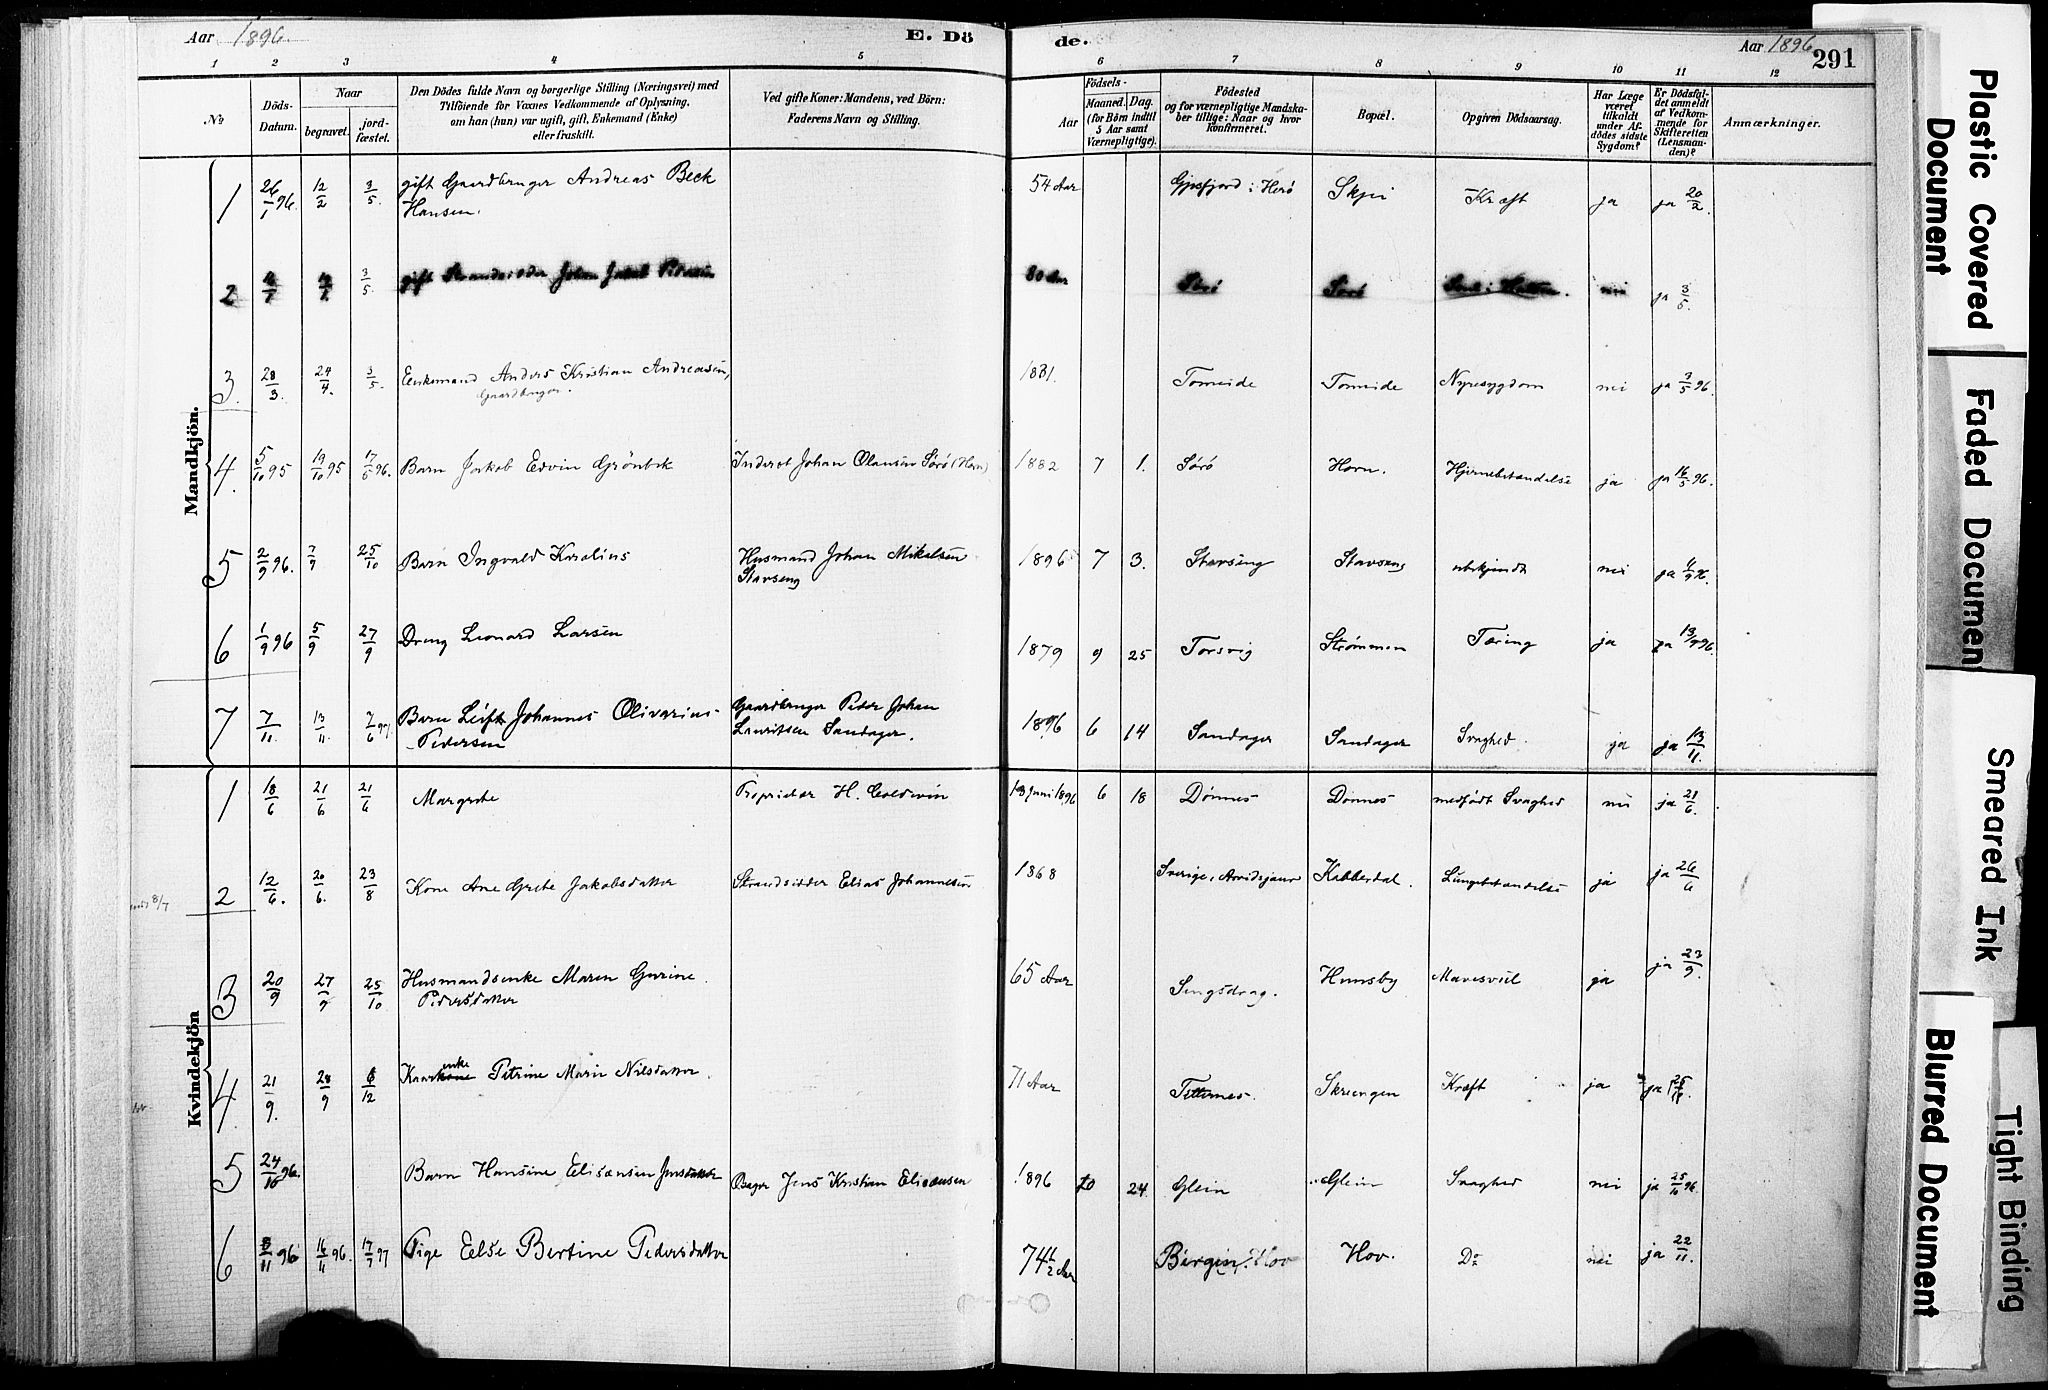 Aar 1896. E. Dö de. Aar 1896 291
1 2 3 4 5 6 7 8 9 10 11 12
№ Döds-Datum. Naar begravet. jordfæstet. Den Dödes fulde Navn og borgerlige Stilling (Næringsvei) med Tilföiende for Voxnes Vedkommende af Oplysning, om han (hun) var ugift, gift, Enkemand (Enke) eller fraskilt. Ved gifte Koner: Mandens, ved Börn: Faderens Navn og Stilling. Födsels- Aar Maaned. Dag. (for Börn indtil 5 Aar samt Værnepligtige). Födested og for værnepligtige Mandskaber tillige: Naar og hvor konfirmeret. Bopæl. Opgiven Dödsaarsag. Har Læge været tilkaldt under Afdödes sidste Sygdom? Er Dödsfaldet anmeldt af Vedkommende for Skifteretten (Lensmanden)? Anmærkninger.
Mandkjön.
1 26/1 96. 12/2 3/5 gift Gaardbruger Andreas Beck Hansen. 54 Aar Herö Kræft ja ja 20/2.
2 3/5. gift Johan Jakob 80 Aar Sörö Sörö nei ja 3/5.
3. 28/3. 24/4. 3/5. Enkemand Anders Kristian Andreasen, Gaardbruger. 1831. Tomeide Tomeide Nyresygdom nei ja 3/5 96.
4. 5/10 95 19/10 95 17/5 96. Barn Jakob Edvin Grönbek Inderst Johan Olausen Sörö (Horn) 1882 7 1. Sörö Horn. Hjernebetændelse ja ja 16/5 96.
5 2/9 96. 7/9 25/10 Barn Ingvald Kornelius Husmand Johan Mikalsen Stavseng 1896 7 3. Stavseng Stavseng ubekjendt nei ja
6 1/9 96 5/9 27/9 Dreng Leonard Larsen 1879 9 25 Torsvig Strömmen Tæring ja ja 13/9 96.
7 7/11. 13/11. 7/6 97 Barn Leif Johannes Olivarius Pedersen Gaardbruger Peder Johan Lauritsen Sandager. 1896 6 14 Sandager Sandager Svaghed. ja ja 13/11.
Kvindekjön
1 18/6 21/6 21/6 Margrete Proprietær H. Coldevin 18 Juni 1896 6 18 Dönnes Dönnes medfödt Svaghed nei ja 21/6.
2 12/6. 20/6. 23/8 Kone Ane Grete Jakobsdatter Strandsidder Elias Johannesen 1868 Sverige, Arvidsjaur Kabberdal. Lungebetændelse ja ja 26/6
3 20/9 27/9 25/10 Husmandsenke Maren Gurine Pedersdatter 65 Aar Sengsdrag. Hunsby Mavesviil ja ja 23/9.
4. 21/9. 28/9 6/12 enke Petrine Marie Nilsdatter. 71 Aar Titternes. Skrængen Kræft ja ja
5 24/10 96. Barn Hansine Eliseusen Jensdatter Jens Kristian Eliseusen 1896 10 24. Glein Glein Svaghed nei ja 25/10 96.
6 8/11 96 16/11 96. 17/7 97 Pige Else Bertine Pedersdatter 74 1/2 Aar Hov Hov. Do nei ja 22/11.
Plastic Covered Document
Faded Document
Smeared Ink
Blurred Document
Tight Binding